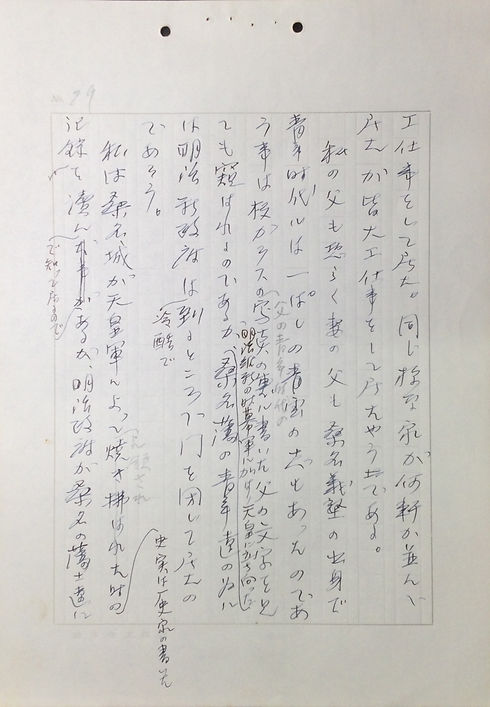 No. 79
工仕事をして居た。同じ様な家が何軒か並んで
居たが皆大工仕事をして居たやうである。
私の父も恐らく妻の父も桑名義塾の出身で
青年時代には一ぱしの青雲の志もあったのであ
父の青年時代の
う事は極がラスの写真の裏に書いた父の文字を見
明治維新の時幕軍にかけり天皇にはむかった
ても窺はれるのであるが、桑名藩の青年達の為に
は明治新政府は到るところ門を閉して居たの
冷酷で
であらう。
私は桑名城が天皇軍によって焼き拂はれた時の
占領され
史実は歴史家の書いた
記録を読んだ事があるが、明治政府が桑名の藩士達に
で知って居るので